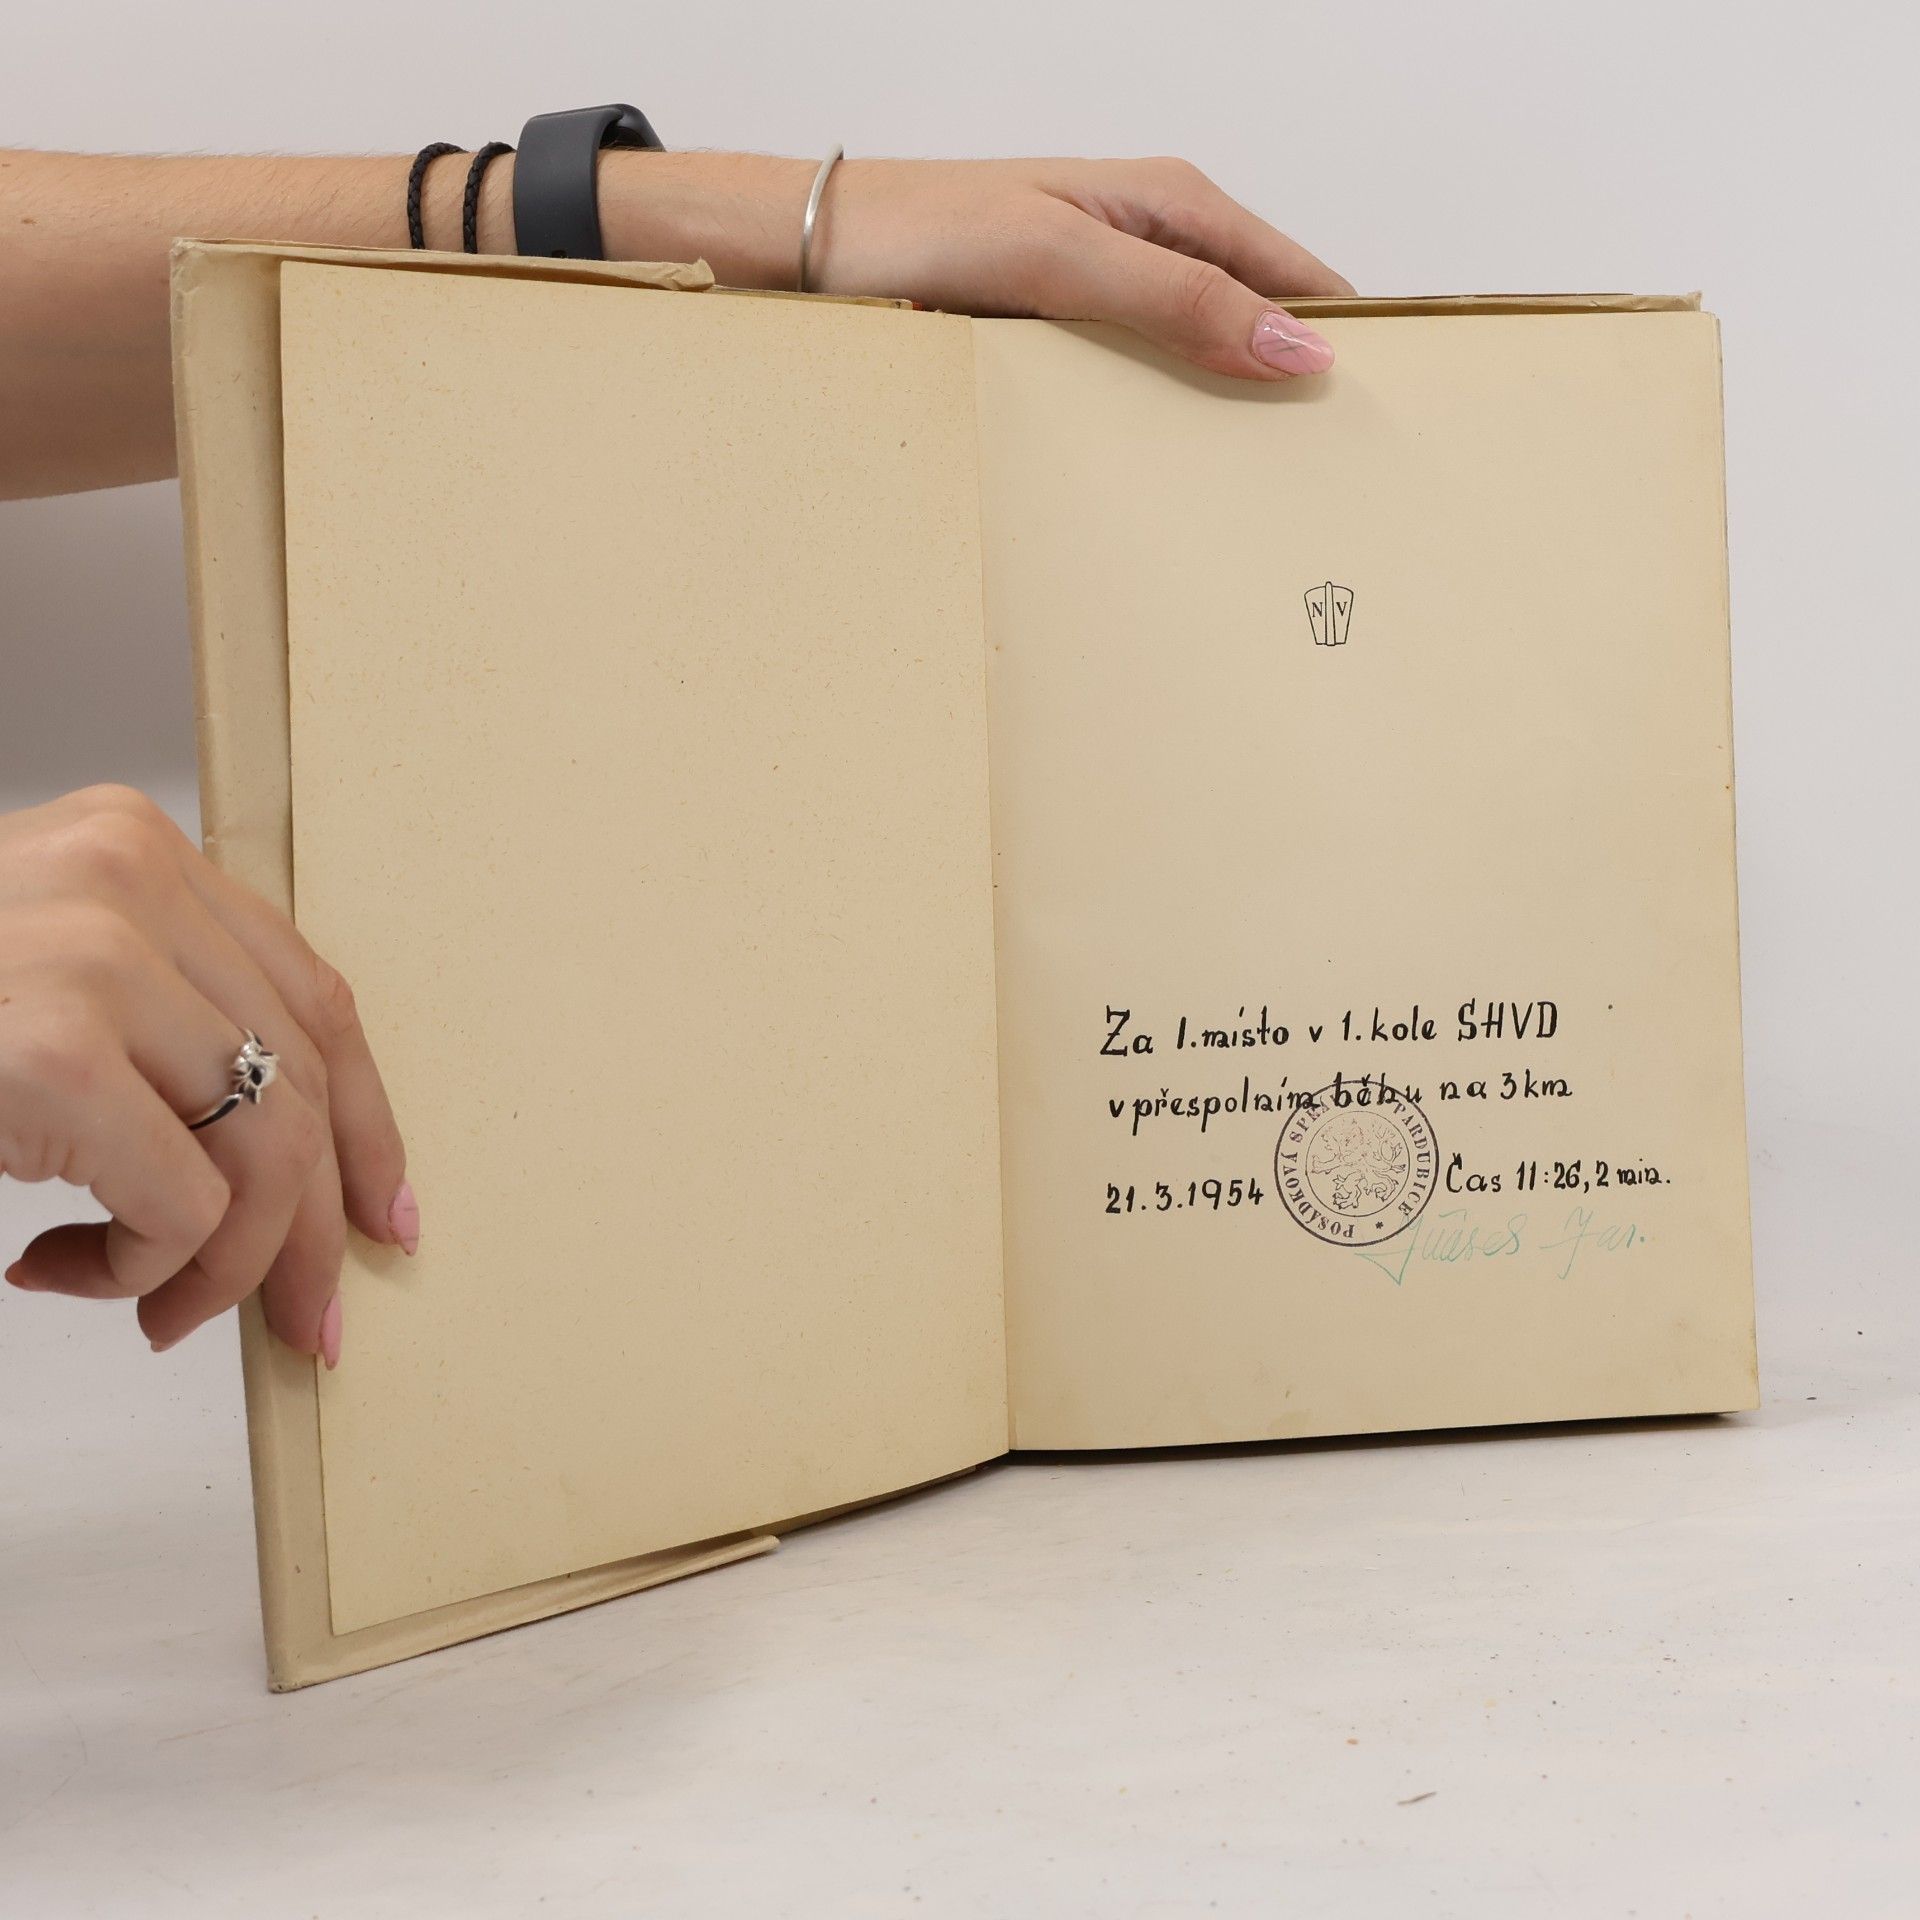 N V
Za 1. místo v 1. kole SHVD
v přespolním běhu na 3 km
21.3.1954
POSÁDKOVÁ SPRÁVA PARDUBICE *
Čas 11:26,2 min.